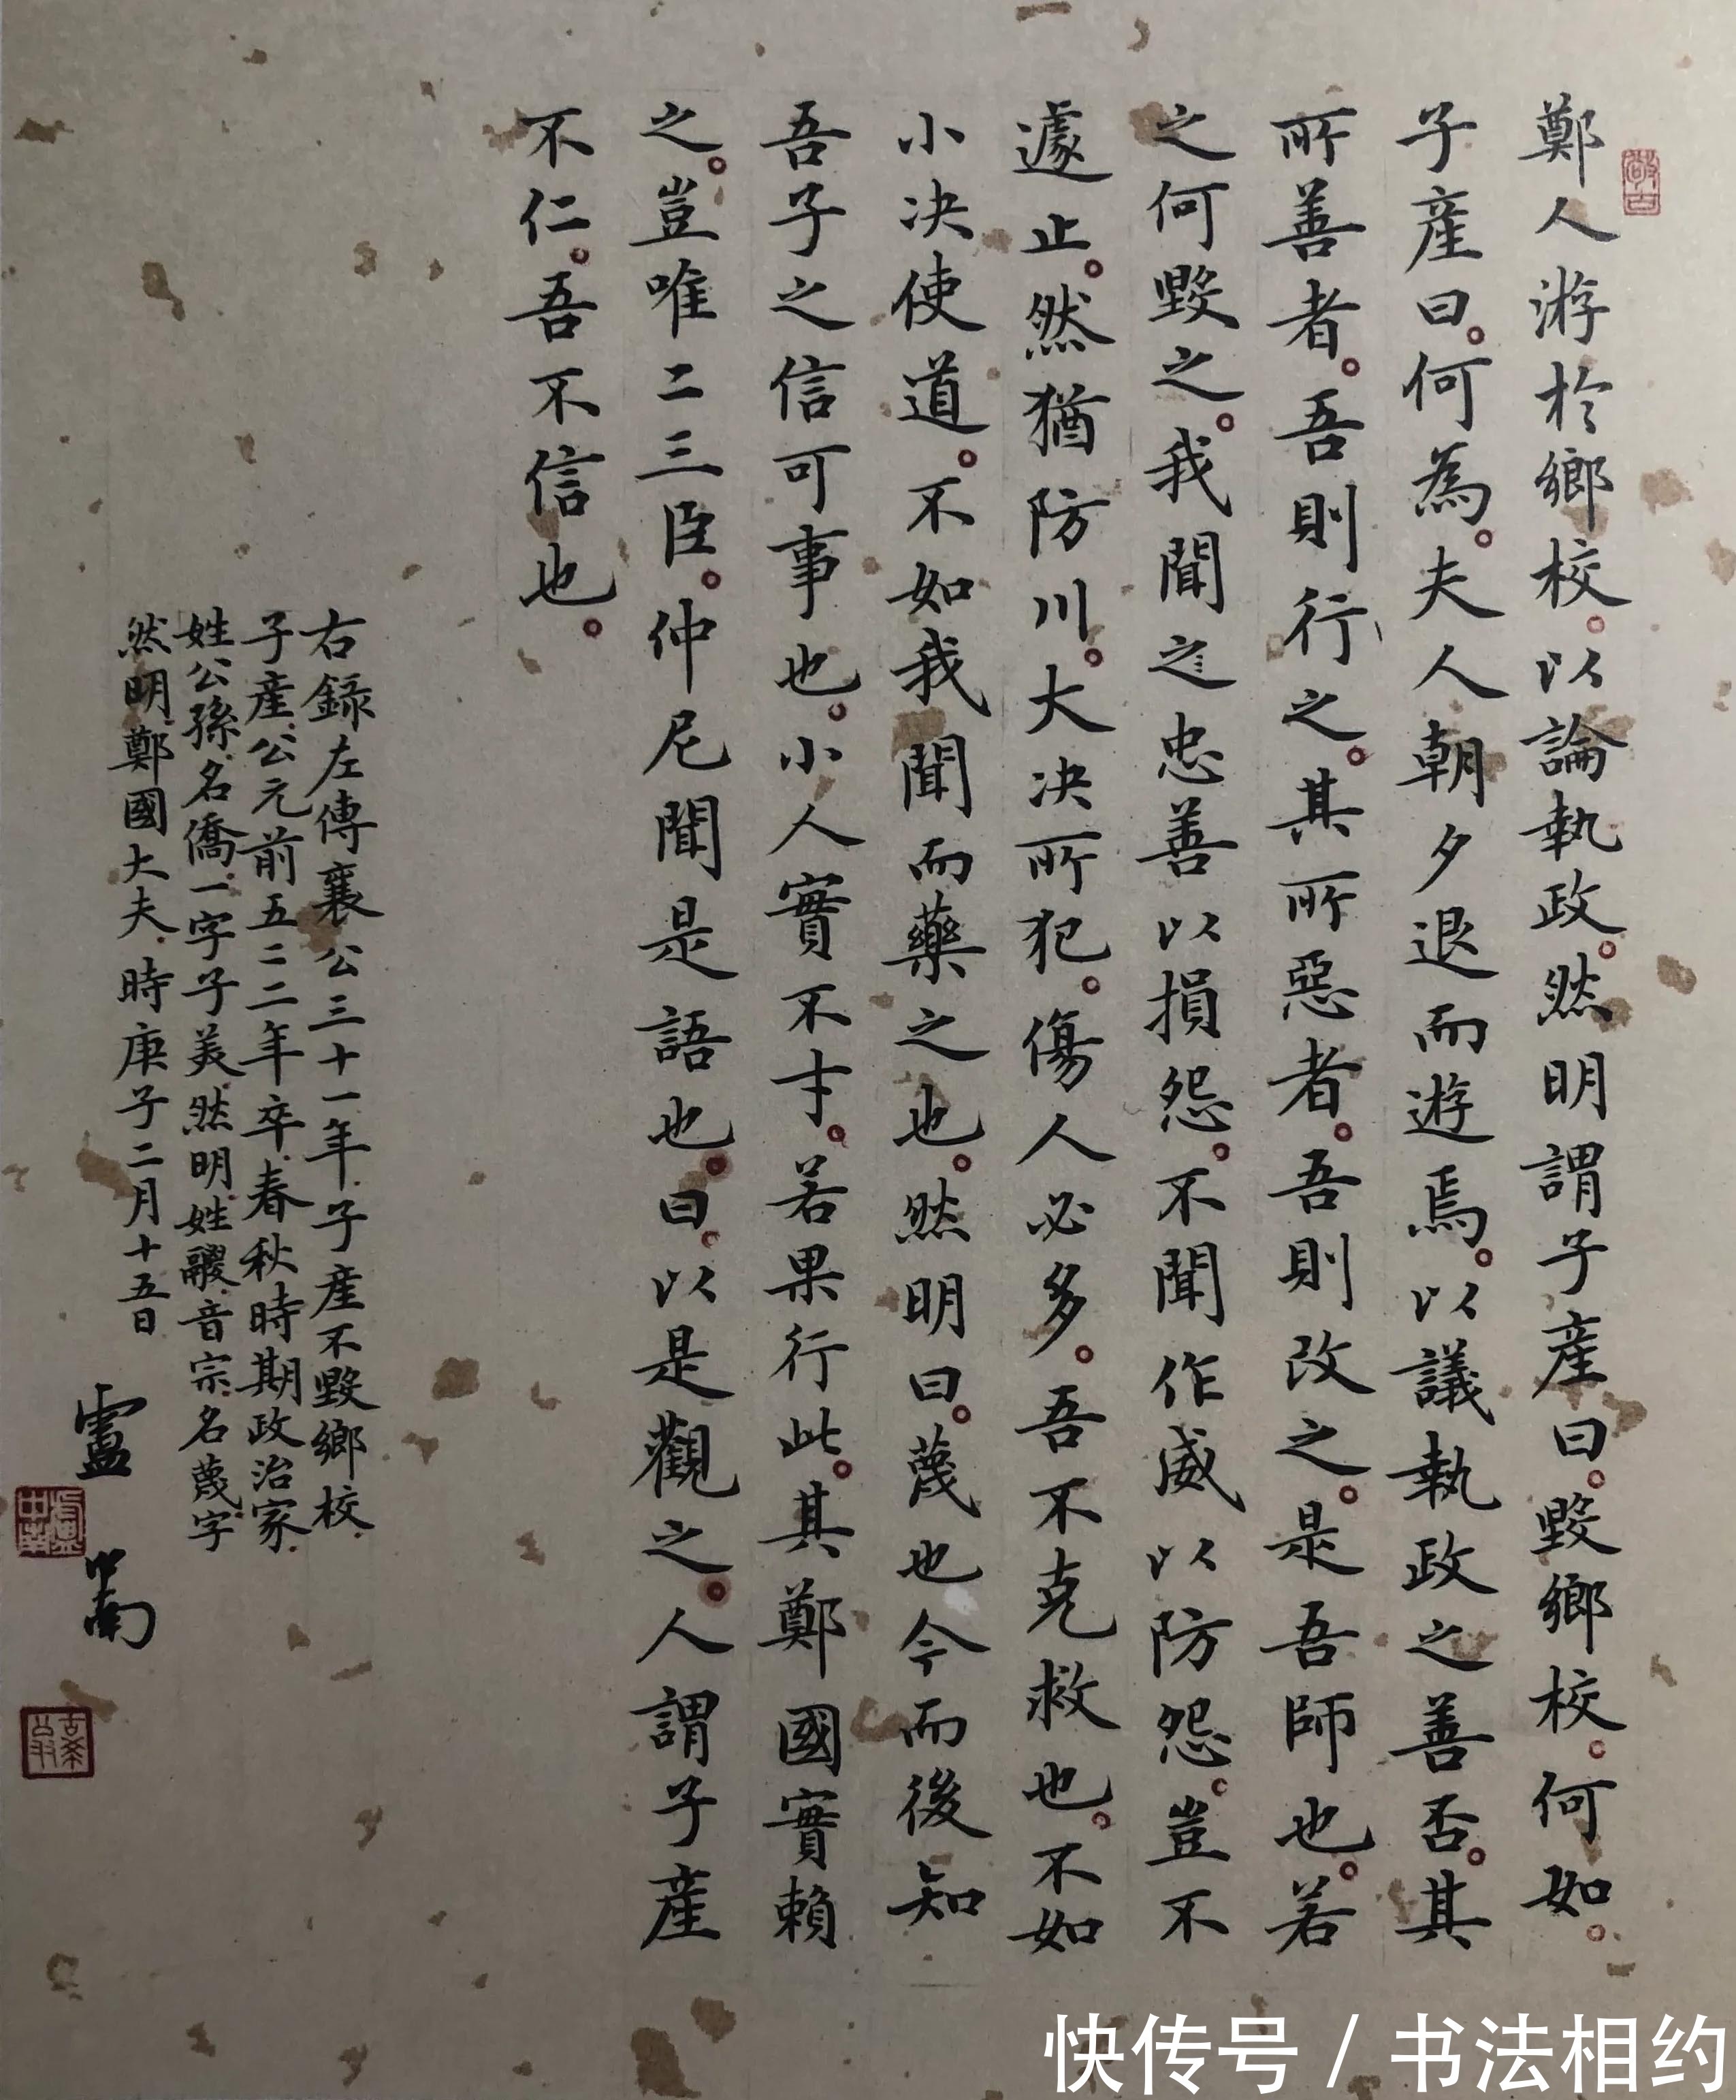 鄭人游於鄉校。以論執政。然明謂子産曰。毀鄉校。何如。
子産曰。何為。夫人朝夕退而遊焉。以議執政之善否。其
所善者。吾則行之。其所惡者。吾則改之。是吾師也。若
之何毀之。我聞之忠善以損怨。不聞作威以防怨。豈不
遽止。然猶防川。大决所犯。傷人必多。吾不克救也。不如
小决使道。不如我聞而藥之也。然明曰。蔑也今而後知
吾子之信可事也。小人實不才。若果行此。其鄭國實賴
之。豈唯二三臣。仲尼聞是語也。曰。以是觀之。人謂子産
不仁。吾不信也。
右録左傳襄公三十一年.子産不毀鄉校.
子産.公元前五二二年卒.春秋時期政治家.
姓公孫.名僑.一字子美.然明.姓鬷.音宗.名蔑.字
然明.鄭國大夫.時庚子二月十五日
盧中南
盧中南
快传号 / 书法相约